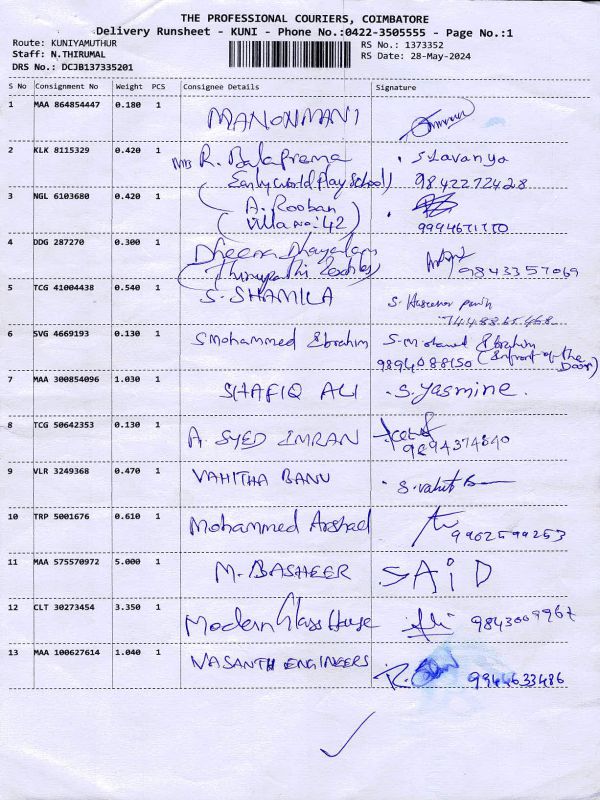 THE PROFESSIONAL COURIERS, COIMBATORE
Delivery Runsheet - KUNI - Phone No.:0422-3505555 - Page No.:1
Route: KUNIYAMUTHUR
RS No.: 1373352
Staff: N.THIRUMAL
RS Date: 28-May-2024
DRS No.: DCJB137335201
S No Consignment No Weight PCS Consignee Details Signature
1 MAA 864854447 0.180 1 MANONMANI
2 KLK 8115329 0.420 1 Mrs R. BalaPrema S Lavanya
Early World Play School) 9842272428
3 NGL 6103680 0.420 1 (A. Rooban
Villa No: 42)
4 DDG 287270 0.300 1 Dheena Dhayalan
(Thirupathi Textiles) 9843357069
5 TCG 41004438 0.540 1 S. SHAMILA S.
6 SVG 4669193 0.130 1 S Mohammed Ebrahim S. Mohamed Ebrahim
9894088150 (Infront of the Door)
7 MAA 300854096 1.030 1 SHAFIQ ALI S. Yasmine.
8 TCG 50642353 0.130 1 A. SYED IMRAN
9894374840
9 VLR 3249368 0.470 1 VAHITHA BANU
10 TRP 5001676 0.610 1 Mohammed Arshad 9962599253
11 MAA 575570972 5.000 1 M. BASHEER SAID
12 CLT 30273454 3.350 1 Modern Glass House Ali 9843009967
13 MAA 100627614 1.040 1 VASANTH ENGINEERS R. 9944633486